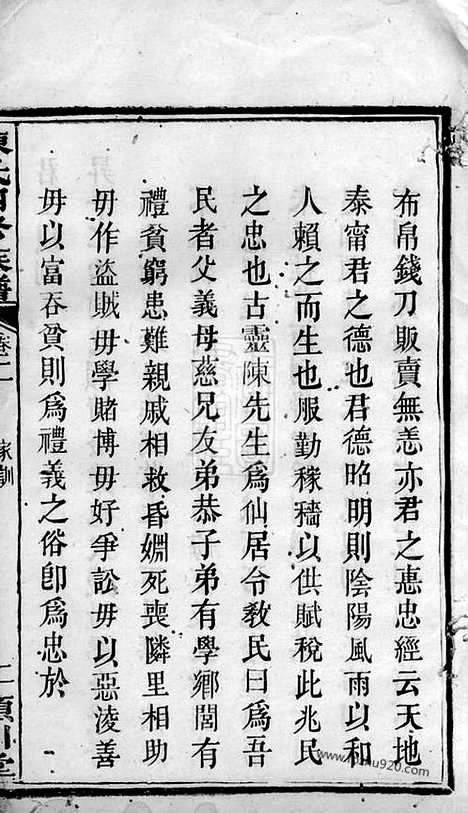 布帛錢刀販賣無恙亦君之惠忠經云天地
泰甯君之德也君德昭明則陰陽風雨以和
人賴之而生也服勤稼穡以供賦稅此兆民
之忠也古靈陳先生爲仙居令教民曰爲吾
民者父義母慈兄友弟恭子弟有學鄉閭有
禮貧窮患難親戚相救昏婣死喪隣里相助
毋作盜賊毋學賭博毋好爭訟毋以惡淩善
毋以富吞貧則爲禮義之俗卽爲忠於
族譜 卷二 家訓 二